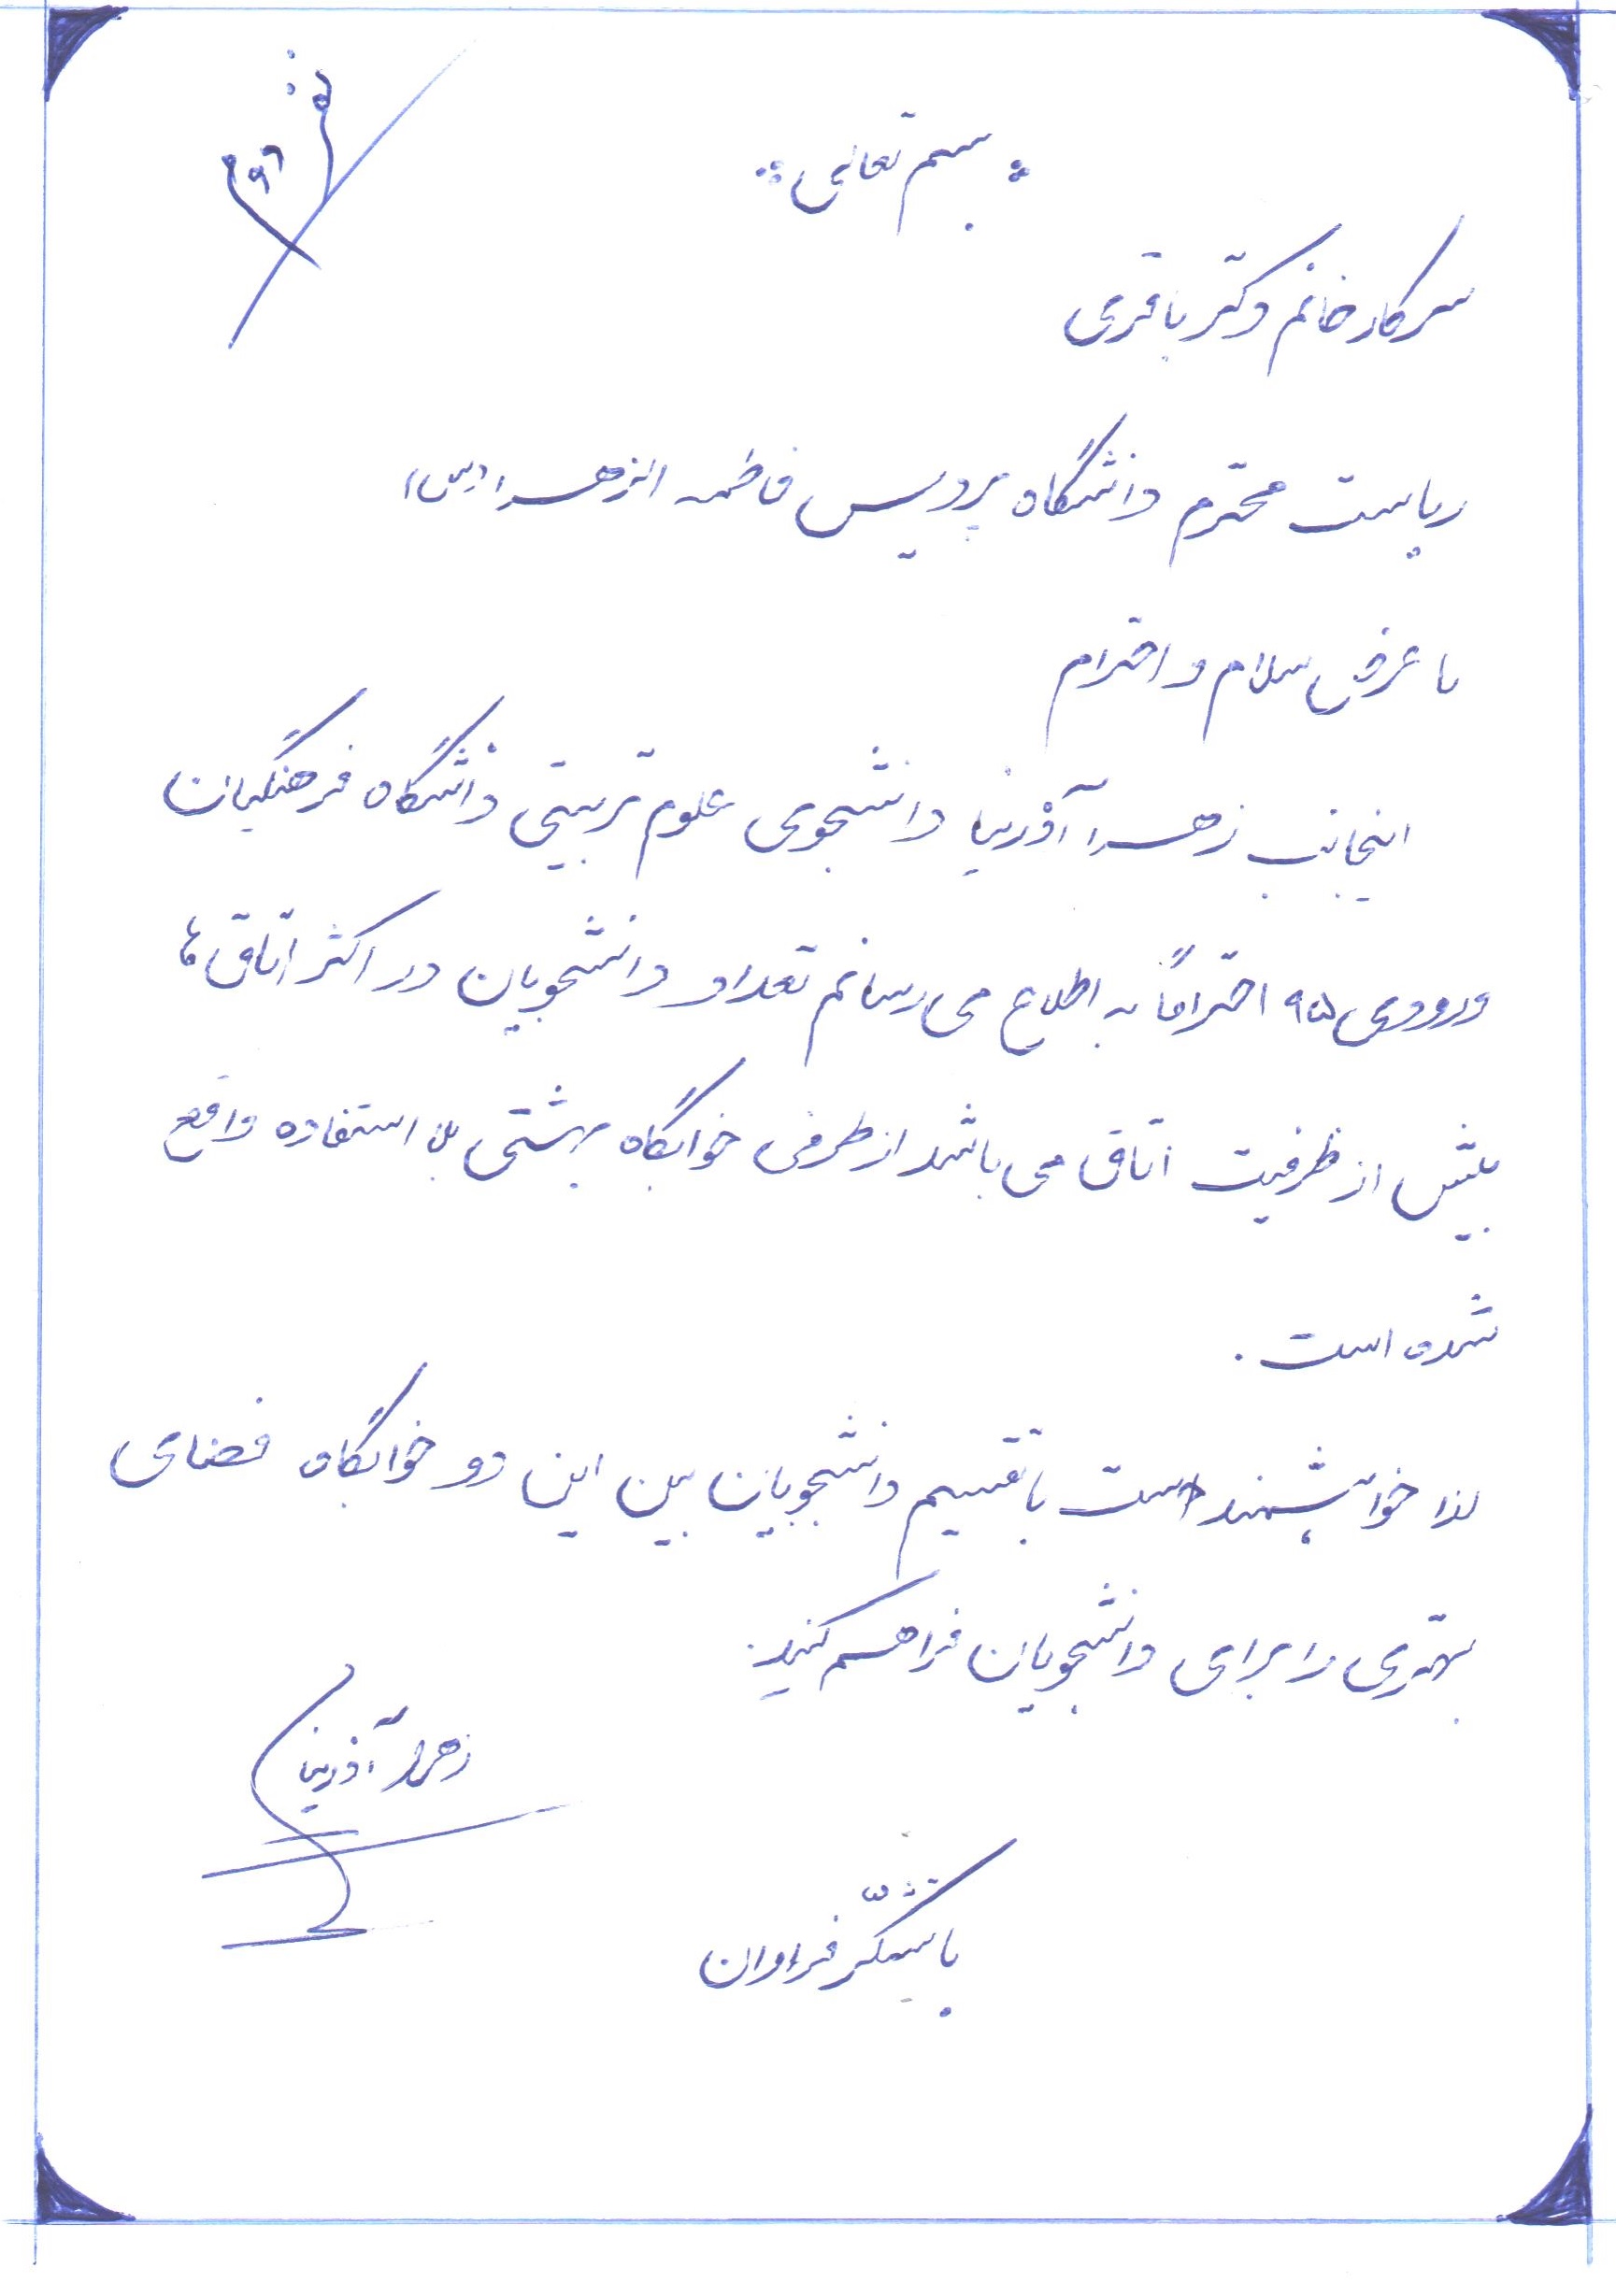 بسم تعالی
سرکار خانم دکتر باقری
ریاست محترم دانشگاه پردیس فاطمه الزهرا (س)
با عرض سلام و احترام
اینجانب زهرا آذرنیا دانشجوی علوم تربیتی دانشگاه فرهنگیان
ورودی ۹۵ احتراماً به اطلاع می رسانم تعداد دانشجویان در اکثر اتاق ها
بیش از ظرفیت اتاق می باشد از طرفی خوابگاه بهشتی بلا استفاده واقع
شده است.
لذا خواهشمند است با تقسیم دانشجویان بین این دو خوابگاه فضای
بهتری را برای دانشجویان فراهم کنید.
زهرا آذرنیا
با تشکّر فراوان